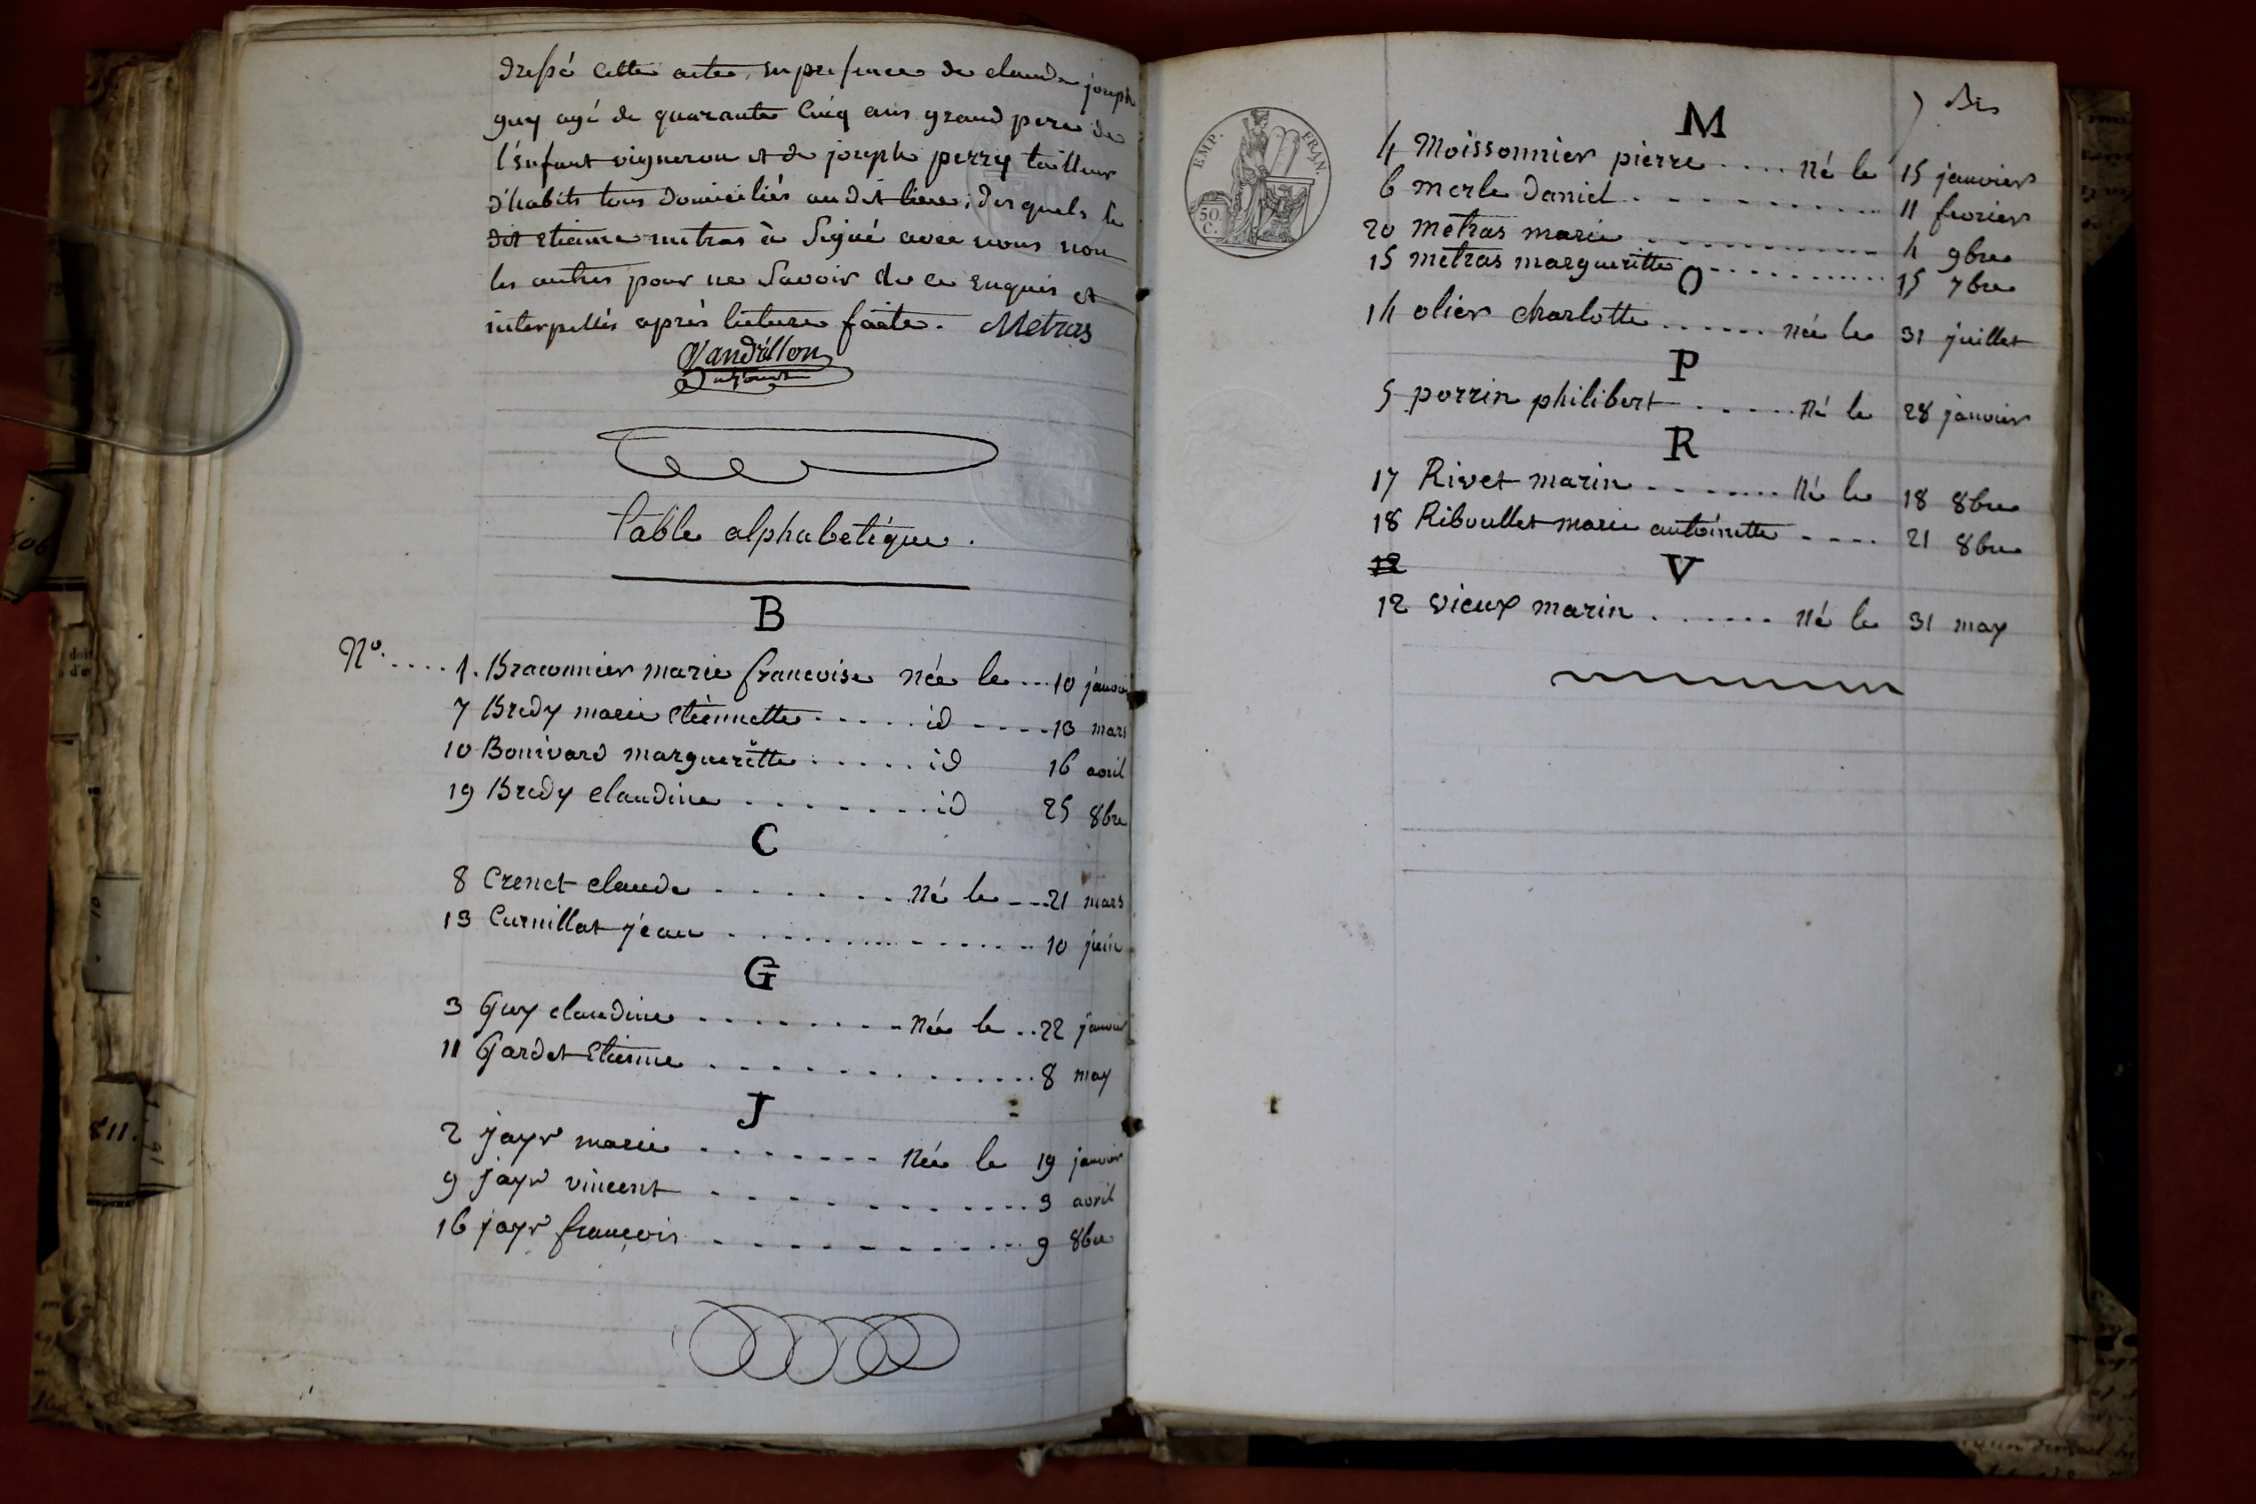 dressé cette acte, en presence de claude joseph
guy agé de quarante cinq ans grand pere de
l'enfant vigneron et de joseph perry tailleur
d'habits tous domiciliés audit lieu; desquels le
dit etienne metras à signé avec nous non
les autres pour ne savoir de ce enquis et
interpellés après lecture faite. Metras
Vandrillon
adjoint
Table alphabetique.
B
N.º .... 1. Braconnier marie francoise née le ... 10 janvier
7 Bredy marie etiennette ..... id ..... 13 mars
10 Bonivard margueritte ..... id 16 avril
19 Bredy claudine ........ id 25 8bre
C
8 Crenet claude ....... Né le ... 21 mars
13 Curnillat jean ............... 10 juin
G
3 Guy claudine ........ Née le .. 22 janvier
11 Gardet Etienne ............. 8 may
J
2 jayr marie ....... Née le 19 janvier
9 jayr vincent ............ 3 avril
16 jayr françois ............ 9 8bre
EMP. FRAN.
50 C.
7 bis
M
4 Moissonnier pierre .... Né le 15 janvier
6 merle daniel .......... 11 fevrier
20 metras marie .......... 4 9bre
15 metras margueritte .......... 15 7bre
O
14 olier charlotte ...... née le 31 juillet
P
5 perrin philibert ..... Né le 28 janvier
R
17 Rivet marin ....... Né le 18 8bre
18 Riboullet marie antoinette .... 21 8bre
12
V
12 vieux marin ...... Né le 31 may
806
doit
d'e
10
811.